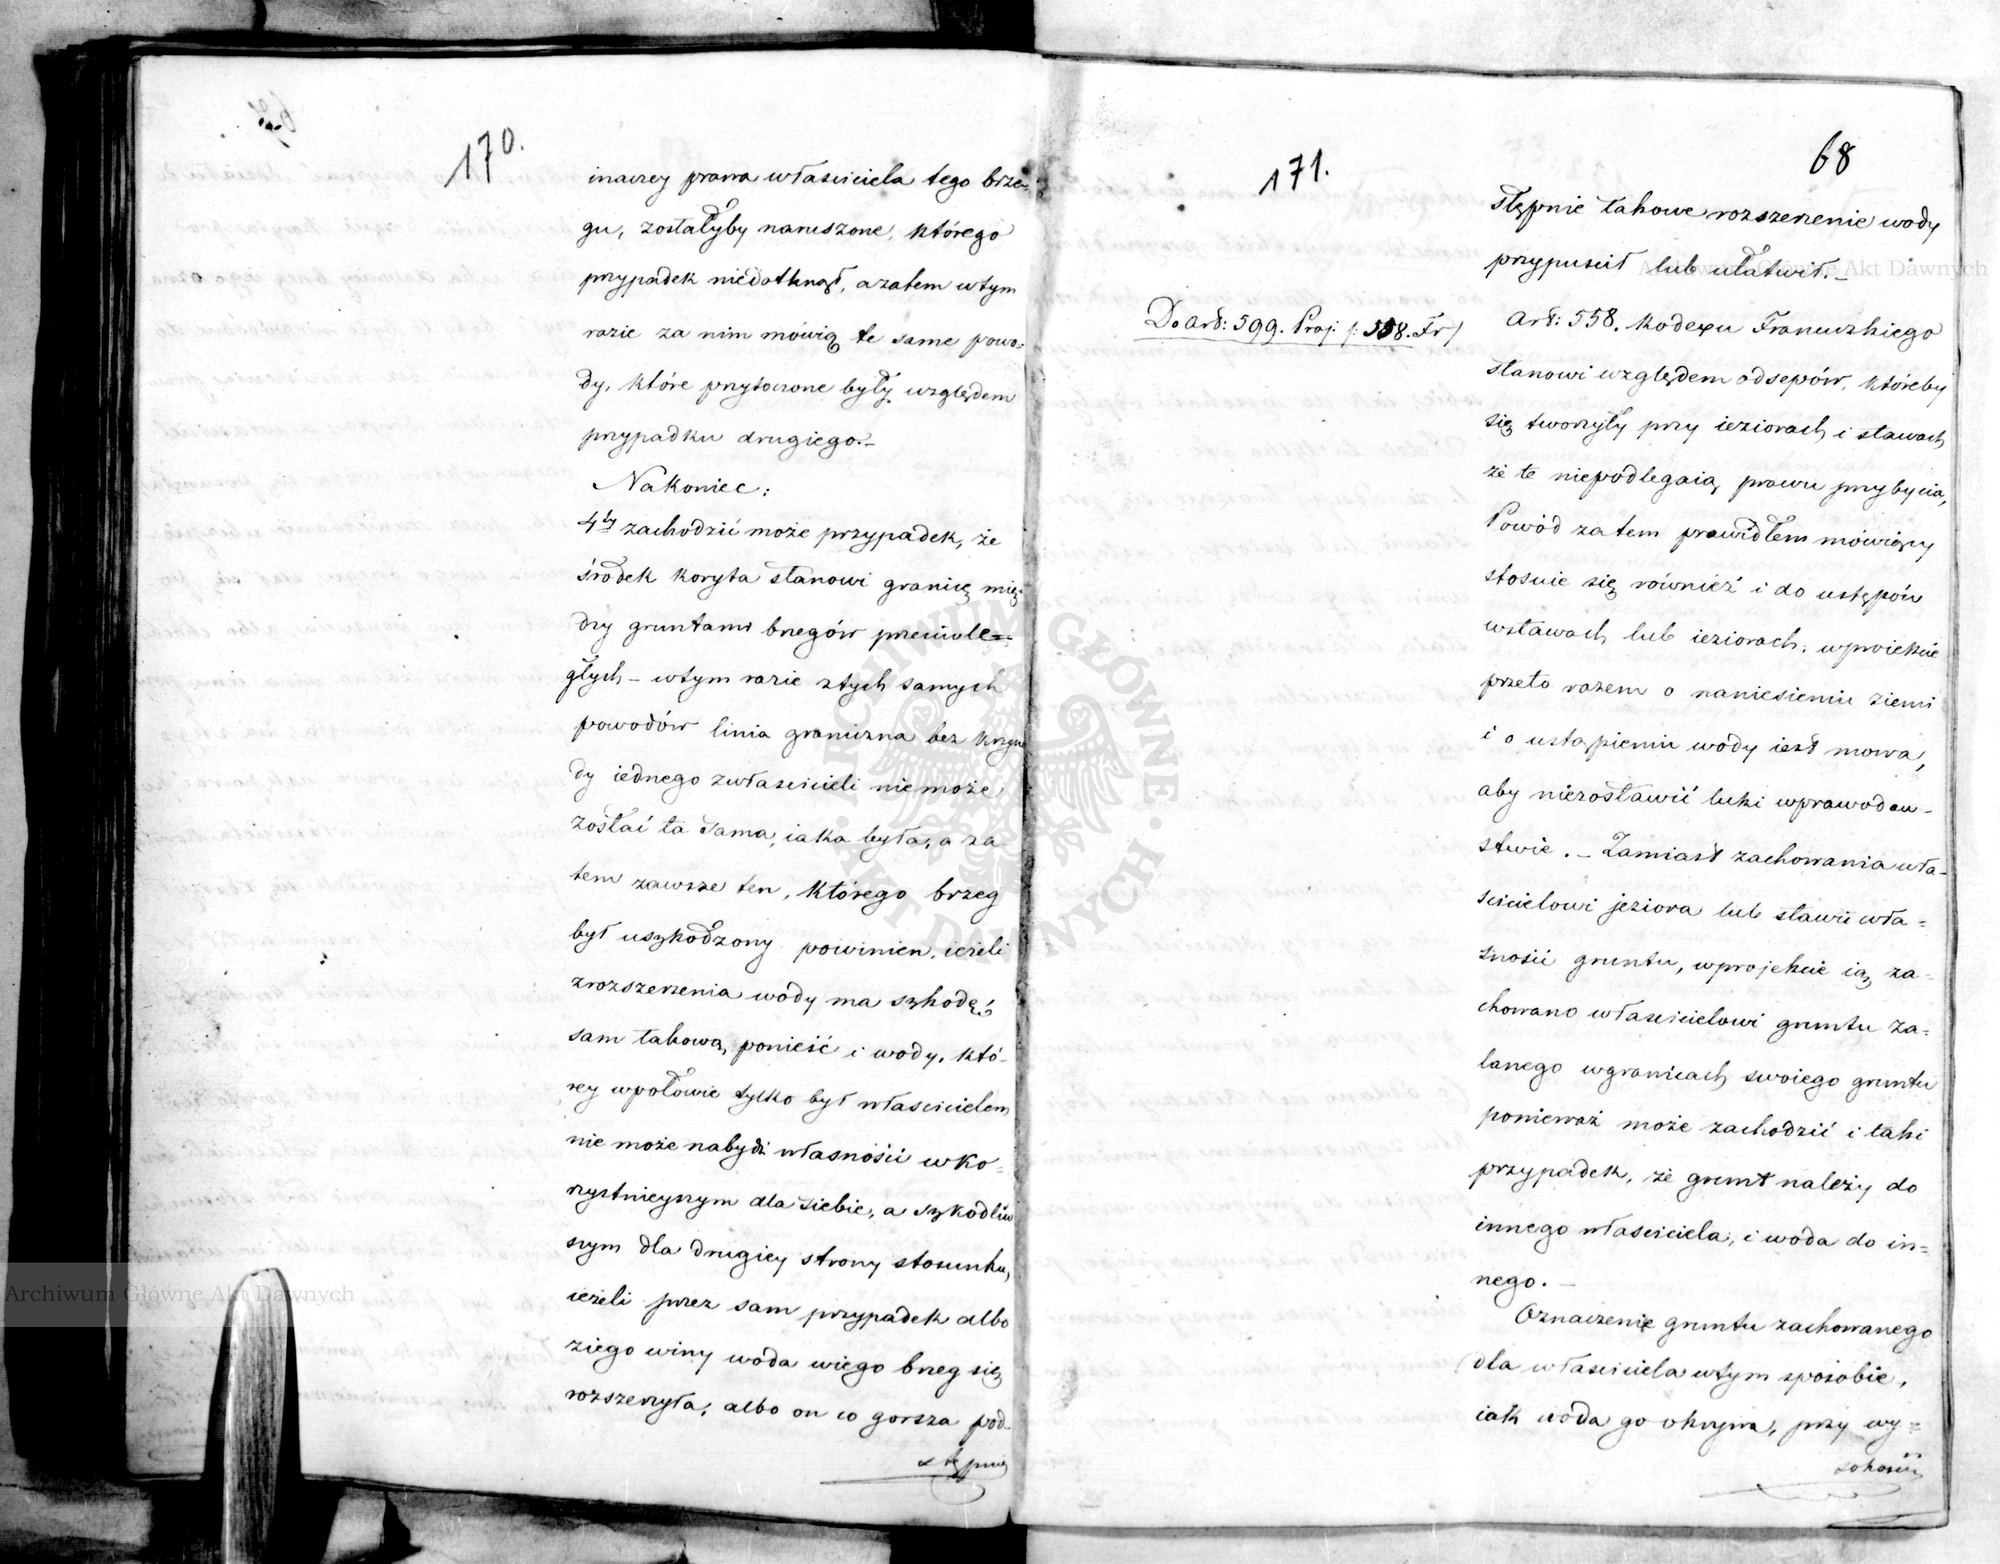 170.
inaczey prawa właściciela tego brze-
gu, zostałyby naruszone, którego
przypadek niedotknął, a zatem w tym
razie za nim mówią te same powo-
dy, które przytoczone były względem
przypadku drugiego.-
Nakoniec:
4ty zachodzić może przypadek, że
środek koryta stanowi granicę mię-
dzy gruntami brzegów przeciwle-
głych - w tym razie z tych samych
powodów linia graniczna bez krzyw
dy iednego z właścicieli nie może
zostać ta sama, iaka była, a za
tem zawsze ten, którego brzeg
był uszkodzony powinien, ieżeli
z rozszerzenia wody ma szkodę,
sam takową ponieść i wody, któ-
rey w połowie tylko był właścicielem
nie może nabydź własności w ko-
rzystnieyszym dla siebie, a szkodliw
szym dla drugiey strony stosunku,
ieżeli przez sam przypadek albo
z iego winy woda w iego brzeg się
rozszerzyła, albo on co gorsza pod-
stępnie
171.
68
stępnie takowe rozszerzenie wody
przypuścił lub ułatwił.-
Do art: 599. Proj: /: 558. Fr/
Art: 558. Kodexu Francuzkiego
stanowi względem odsepów, któreby
się tworzyły przy ieziorach i stawach
że te niepodlegaią prawu przybycia,
Powód za tem prawidłem mówiący
stosuie się również i do ustępów
w stawach lub ieziorach; w proiekcie
przeto razem o naniesieniu ziemi
i o ustąpieniu wody iest mowa,
aby niezostawić luki w prawodaw-
stwie. - Zamiast zachowania wła-
ścicielowi jeziora lub stawu wła-
sności gruntu, w projekcie ią za-
chowano właścicielowi gruntu za-
lanego w granicach swoiego gruntu
ponieważ może zachodzić i taki
przypadek, że grunt należy do
innego właściciela, i woda do in-
nego. -
Oznaczenie gruntu zachowanego
dla właściciela w tym sposobie,
iak woda go okrywa, przy wy-
sokości
Archiwum Główne Akt Dawnych
Archiwum Główne Akt Dawnych
ARCHIWUM GŁÓWNE AKT DAWNYCH